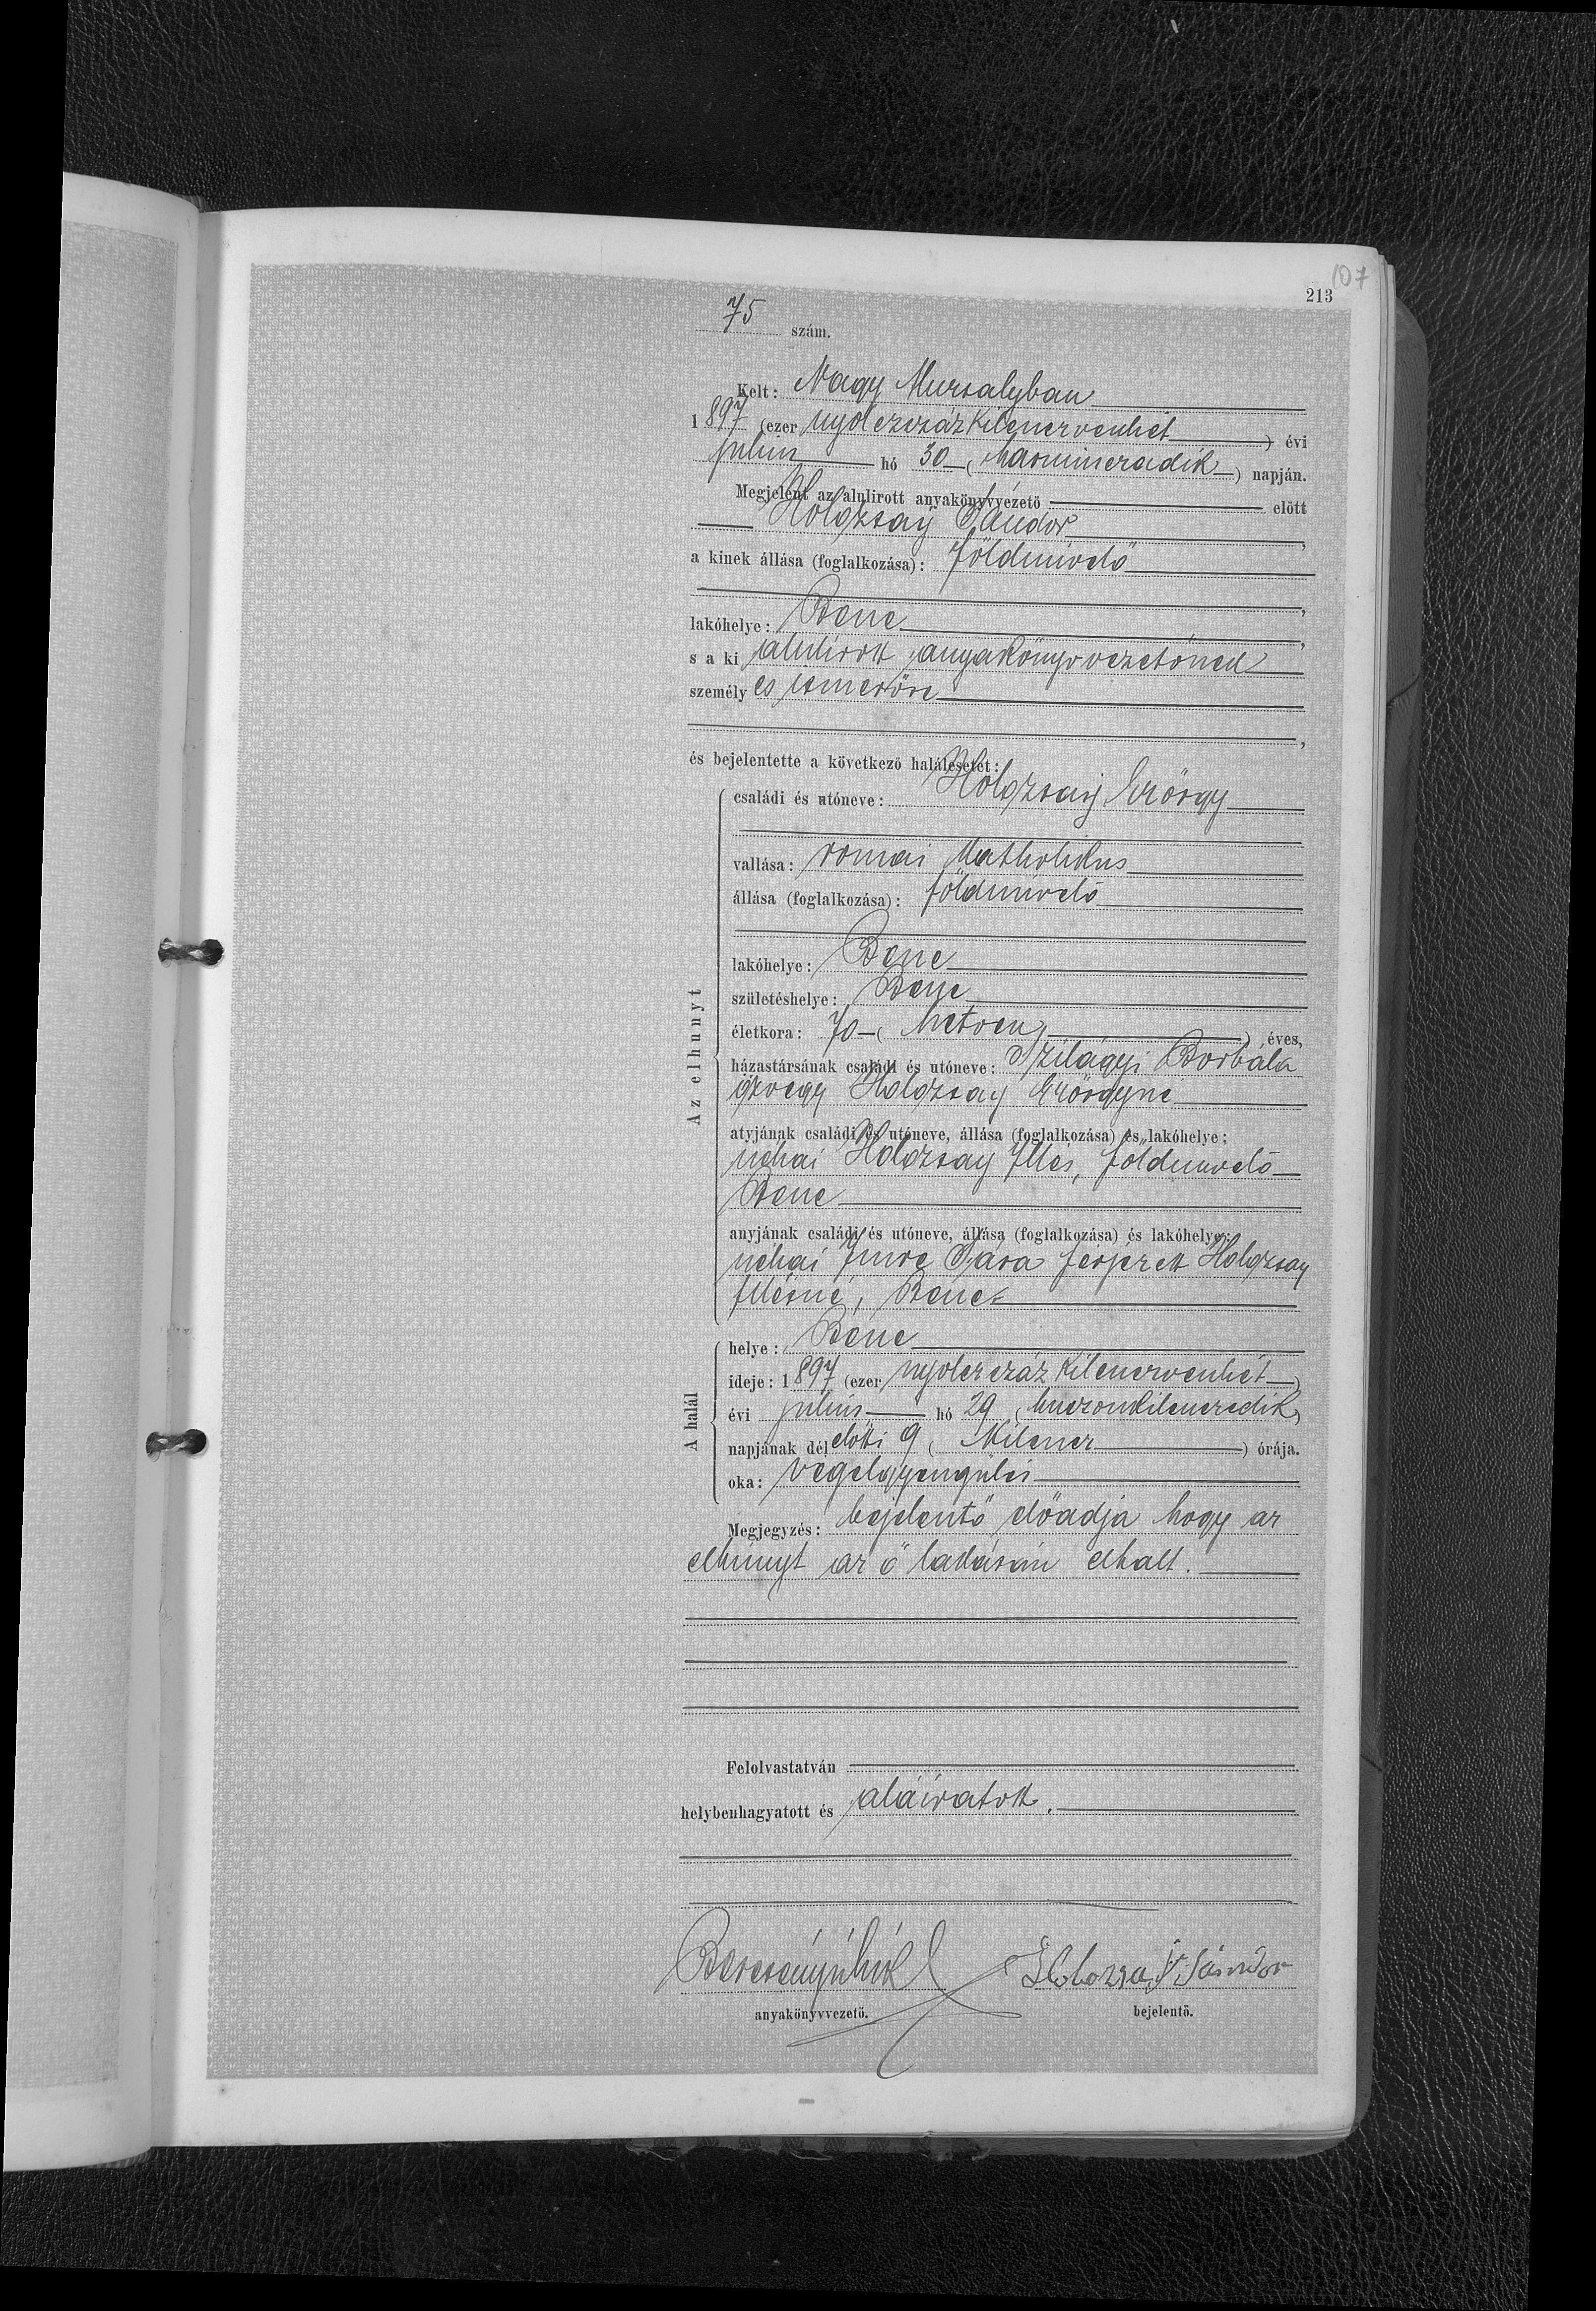 107
213
75 szám.
Kelt: Nagy Muzsalyban
1897 (ezer nyolczszázkilenczvenhét) évi
julius hó 30 (harminczadik) napján.
Megjelent az alulirott anyakönyvvezető előtt
Holozsay Sándor,
a kinek állása (foglalkozása): földmivelő
lakóhelye: Bene,
s a ki alulirott anyakönyvvezetőnek
személyes ismerőse
és bejelentette a következő halálesetet:
Az elhunyt
családi és utóneve: Holozsay György
vallása: romai katholikus
állása (foglalkozása): földmivelő
lakóhelye: Bene
születéshelye: Bene
életkora: 70 (hetven) éves,
házastársának családi és utóneve: Szilágyi Borbála
özvegy Holozsay Györgyné
atyjának családi és utóneve, állása (foglalkozása) és lakóhelye:
néhai Holozsay Illés, földmivelő
Bene
anyjának családi és utóneve, állása (foglalkozása) és lakóhelye:
néhai Imre Sára férjezett Holozsay
Illésné, Bene
A halál
helye: Bene
ideje: 1897 (ezer nyolczszáz kilenczvenhét)
évi julius hó 29 (huszonkilenczedik)
napjának délelőtti 9 (kilencz) órája.
oka: végelgyengülés
Megjegyzés: bejelentő előadja hogy az
elhunyt az ő lakásán elhalt.
Felolvastatván
helybenhagyatott és aláiratott.
Holozsay Sándor
anyakönyvvezető. bejelentő.